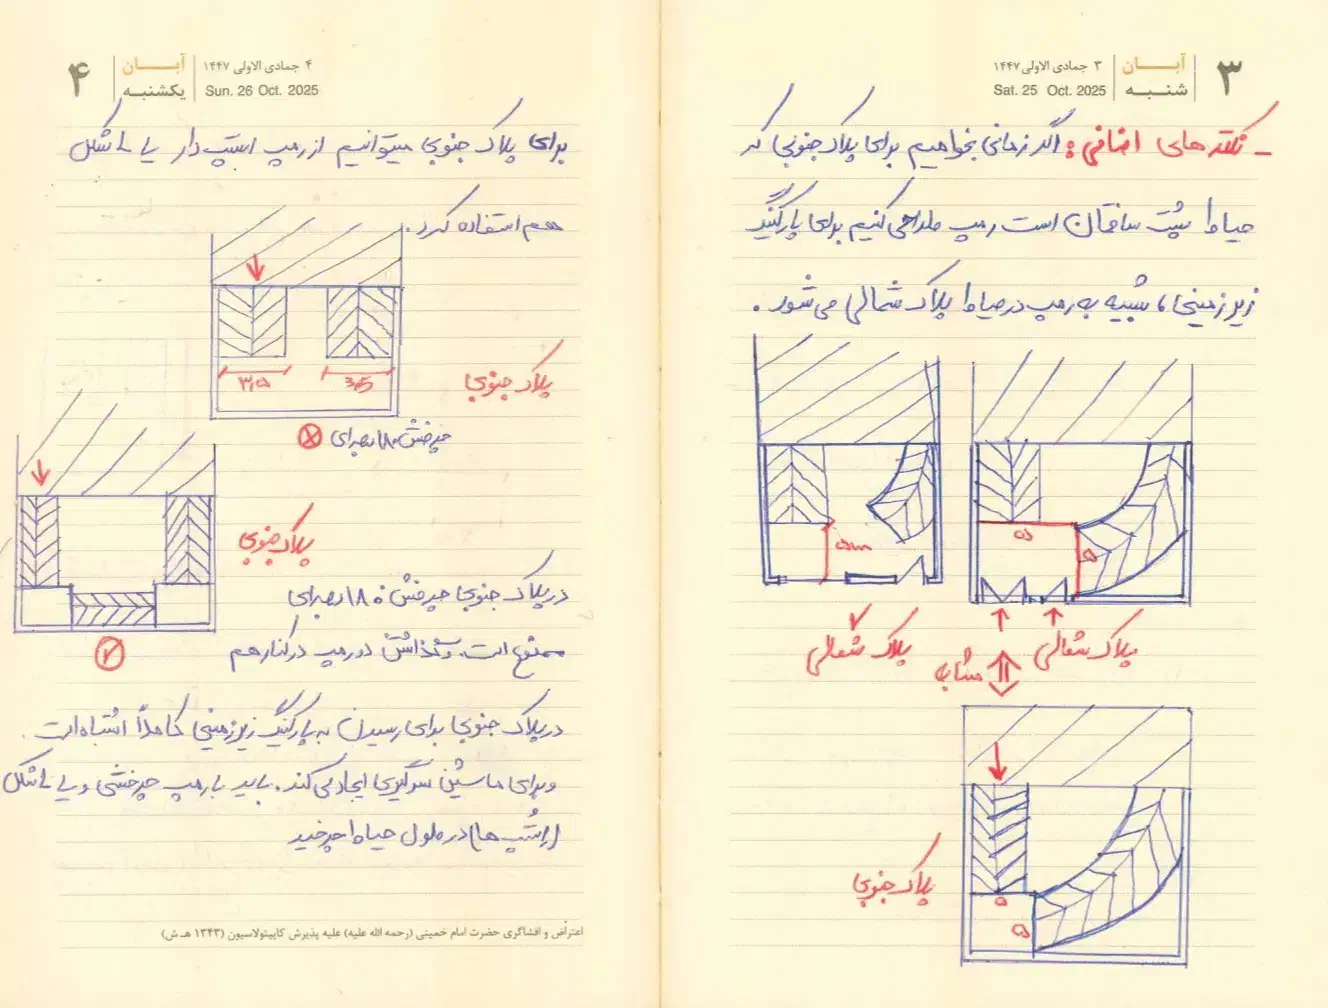 ۳
آبان
شنبه
۳ جمادی الاولی ۱۴۴۷
Sat. 25 Oct. 2025
ـ نکته های اضافی: اگر زمانی بخواهیم برای پلاک جنوبی که
حیاط پشت ساختمان است رمپ طراحی کنیم برای پارکینگ
زیرزمینی، شبیه به رمپ در حیاط پلاک شمالی می شود.
۵m
۵
۵
پلاک شمالی
پلاک شمالی
مشابه
پلاک جنوبی
۵
۵
۴
آبان
یکشنبه
۴ جمادی الاولی ۱۴۴۷
Sun. 26 Oct. 2025
برای پلاک جنوبی میتوانیم از رمپ استپ دار یا L شکل
هم استفاده کرد.
۳,۵
3,5
پلاک جنوبی
چرخش ۱۸۰ درجه ای
پلاک جنوبی
در پلاک جنوبی چرخش ۱۸۰ درجه ای
ممنوع است. و گذاشتن دو رمپ در کنار هم
در پلاک جنوبی برای رسیدن به پارکینگ زیرزمینی کاملاً اشتباه است.
و برای ماشین سرگیری ایجاد می کند. باید با رمپ چرخشی و یا L شکل
(استپ ها) در طول حیاط چرخید
اعتراض و افشاگری حضرت امام خمینی (رحمه الله علیه) علیه پذیرش کاپیتولاسیون (۱۳۴۳ هـ.ش)